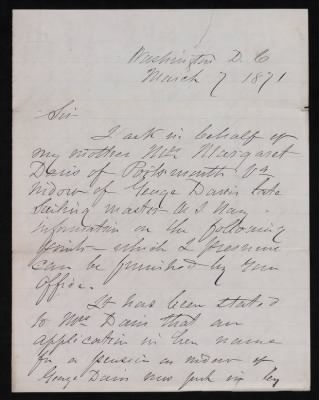 Washington D. C
March 7 1871
Sir
I ask in behalf of
my mother Mrs Margaret
Davis of Portsmouth Va
widow of George Davis late
Sailing master U S Navy
information on the following
points - which I presume
can be furnished by your
Office.
It has been stated
to Mrs Davis that an
application in her name
for a pension as widow of
George Davis was in by